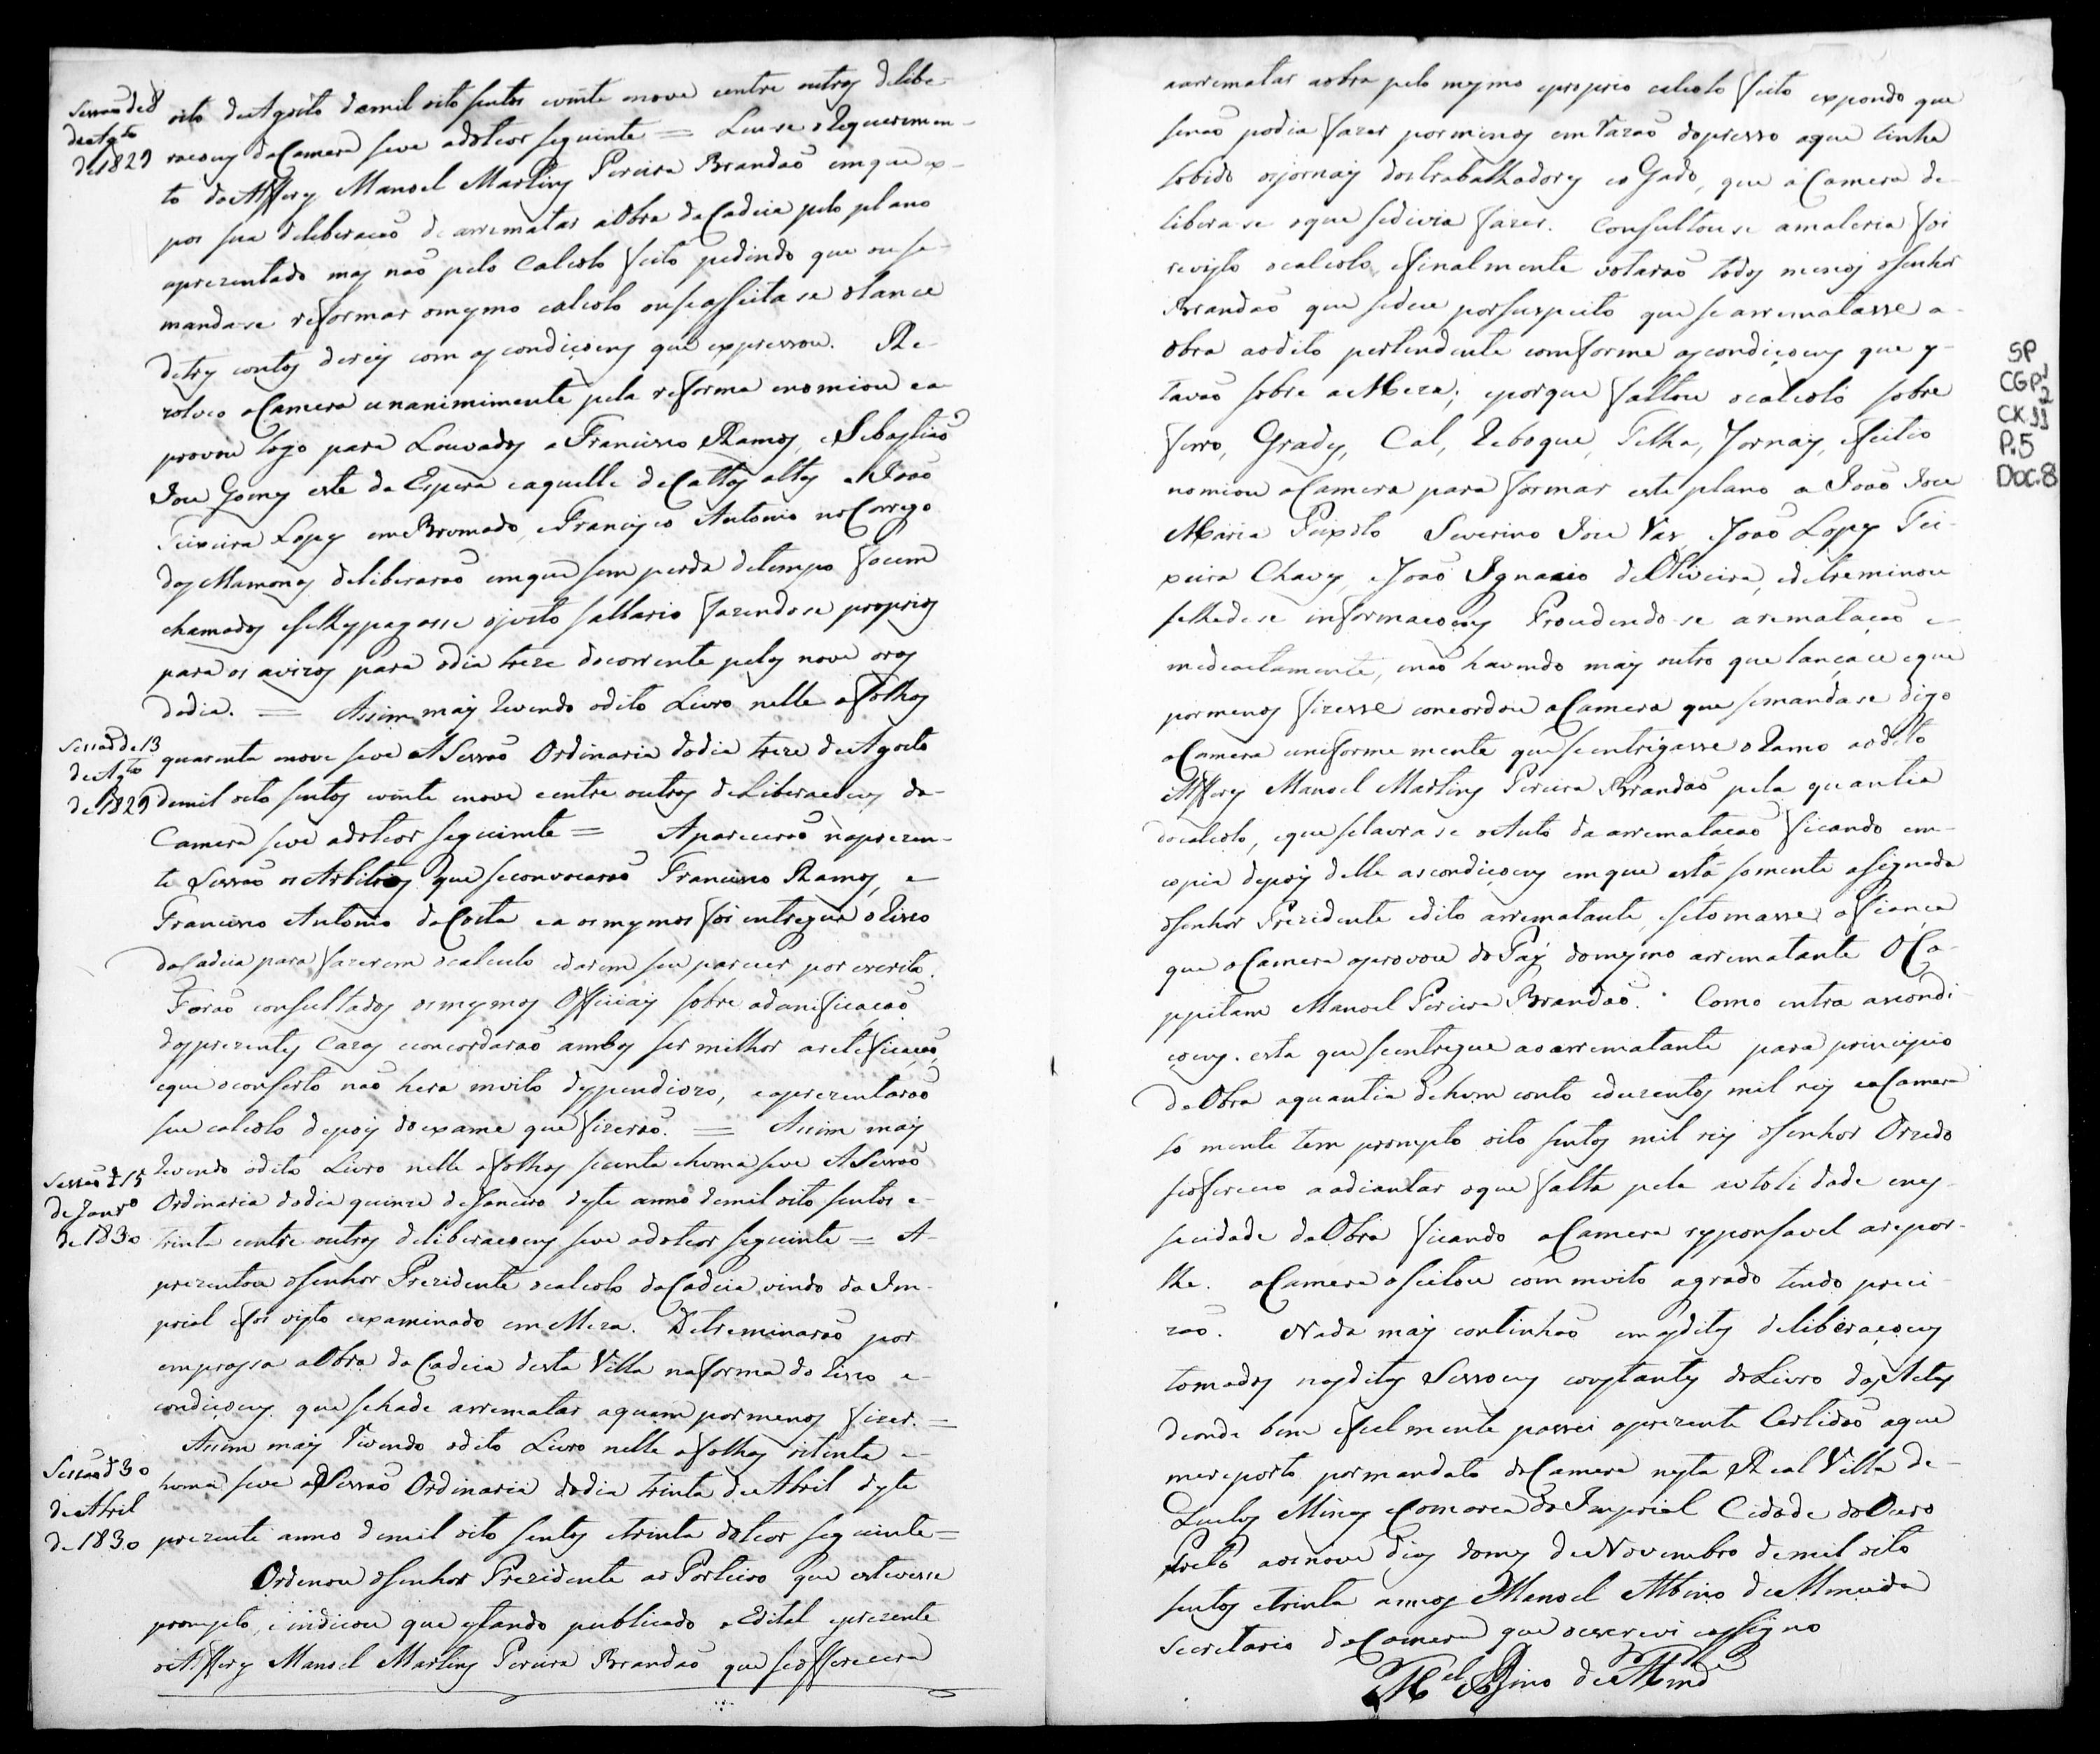 Sessaõ de 8
de Ag.to
de 1829
oito de Agosto de mil oito sentos e vinte e nove e entre outras delibe-
raçoens da Camera se ve a do teor seguinte = Leu-se o Requerimen-
to do Alferes Manoel Martins Pereira Brandaõ em que ex-
pos sua deliberaçaõ de arrematar a Obra da Cadeia pelo plano
aprezentado mas naõ pelo Calculo feito pedindo que ou se
mandase reformar o mesmo calculo ou se asseitase o lance
de tres contos de reis com as condiçoens que expressou. Re-
zolveo a Camera unanimimente pela reforma e nomiou e a
provou logo para Louvados a Francisco Ramos, e Sebastiaõ
Joze Gomes este da Espera e aquelle de Cattas altas e Joaõ
Teixeira Lopes em Bromado, e Francisco Antonio no Corrego
dos Mamonas deliberaraõ em que sem perda de tempo focem
chamados e se lhes pagasse o justo sallario fazendose proprios
para os avizos para o dia treze do corrente pelas nove oras
do dia. = Assim mais Revendo o dito Livro nelle a folhas
Sessaõ de 13
de Ag.to
de 1829
quarenta e nove se ve A Sessaõ Ordinaria do dia treze de Agosto
de mil oito sentos e vinte e nove e entre outras deLiberaçoens da
Camera se ve a do teor seguinte = Apareceraõ na prezen-
te Sessaõ os Arbitros que se convocaraõ Francisco Ramos, e
Francisco Antonio da Costa e a os mesmos foi entregue o Risco
da Cadeia para fazerem o calculo e darem seu parecer por escrito.
Foraõ consultados os mesmos Officiais sobre a danificaçaõ
dos prezentes Cazos e concordaraõ ambos ser milhor a retificaçaõ,
e que o conserto naõ hera muito despendiozo, e aprezentaraõ
seu calculo depois do exame que fizeraõ. = Assim mais
Revendo o dito Livro nelle a folhas secenta e huma se ve A Sessaõ
Sessaõ de 15
de Janr.o
de 1830
Ordinaria do dia quinze de Janeiro deste anno de mil oito sentos e
trinta e entre outras deliberaçoens se ve a do teor seguinte = A-
prezentou o senhor Prezidente o calculo da Cadeia vindo da Im-
prial e foi visto e examinado em Meza. Detreminaraõ por
em prassa a Obra da Cadeia desta Villa na forma do Risco e
condiçoens que se ha de arrematar a quem por menos fizer. =
Assim mais Rivendo o dito Livro nelle a folhas oitenta e
Sessaõ de 30
de Abril
de 1830
huma se ve a Sessaõ Ordinaria do dia trinta de Abril deste
prezente anno de mil oito sentos e trinta do teor seguinte =
Ordenou o senhor Prezidente ao Porteiro que estevesse
prompto, e indicou que estando publicado o Edital e prezente
o Alferes Manoel Martins Pereira Brandaõ que se offerecera
arrematar a obra pelo mesmo e proprio calculo feito expondo que
senaõ podia fazer por menos em Razaõ do presso a que tinha
sobido os jornais dos trabalhadores e o Gado, que a Camera de-
liberase o que se divia fazer. Consultouse a materia foi
revisto o calculo, e finalmente votaraõ todos menos o senhor
Brandaõ que se deu por suspeito que se arrematasse a
Obra ao dito pertendente comforme as condiçoens que es-
tavaõ sobre a Meza; e porque faltou o calculo sobre
ferro, Grades, Cal, Reboque, Telha, Jornais, e feitio
nomiou a Camera para formar este plano a Joaõ Joze
Maria Peixoto Severino Joze Vas Joaõ Lopes Tei-
xeira Chaves, e Joaõ Ignacio de Oliveira, e detreminou
se lhe dese informaçoens Proudendo-se a rematacaõ e
mediactamente, e naõ havendo mais outro que lançace e que
por menos fizesse concordou a Camera que se mandase digo
a Camera uniformemente que se entrigasse o Ramo ao dito
Alferes Manoel Martins Pereira Brandaõ pela quantia
do calculo, e que se lavrase o Auto da arremataçaõ ficando em
copia depois delle as condiçoens em que está somente assignado
o senhor Prezidente e dito arrematante, e se tomasse a fiança
que a Camera aprovou do Pay do mesmo arrematante O Ca-
ppitam Manoel Pereira Brandaõ. Como entra as condi
çoens. esta que se entregue ao arrematante para principio
da Obra a quantia de hum conto e duzentos mil reis e a Camera
so mente tem prompto oito sentos mil reis o senhor Orzedo
se ofereceo a adiantar o que falta pela utoli dade e nes-
secidade da Obra ficando a Camera responsavel a repor-
lhe. a Camera aseitou com muito agrado tendo preci
zaõ. Nada mais continhaõ em as ditas deliberaçoens
tomadas nas ditas Sessoens constantes do Livro das Actas
de onde bem e fielmente passei a prezente Certidaõ a que
me reporto por mandato da Camera nesta Real Villa de
Queluz Minas Comarca da Imprial Cidade do Ouro
Preto aos nove dias do mes de Novembro de mil oito
sentos e trinta annos Manoel Albino de Almeida
Secretario da Camera que o escrevi e assigno
M.el Albino de Almd.a
SP
CGP1
2
CX.11
P.5
DOC.8